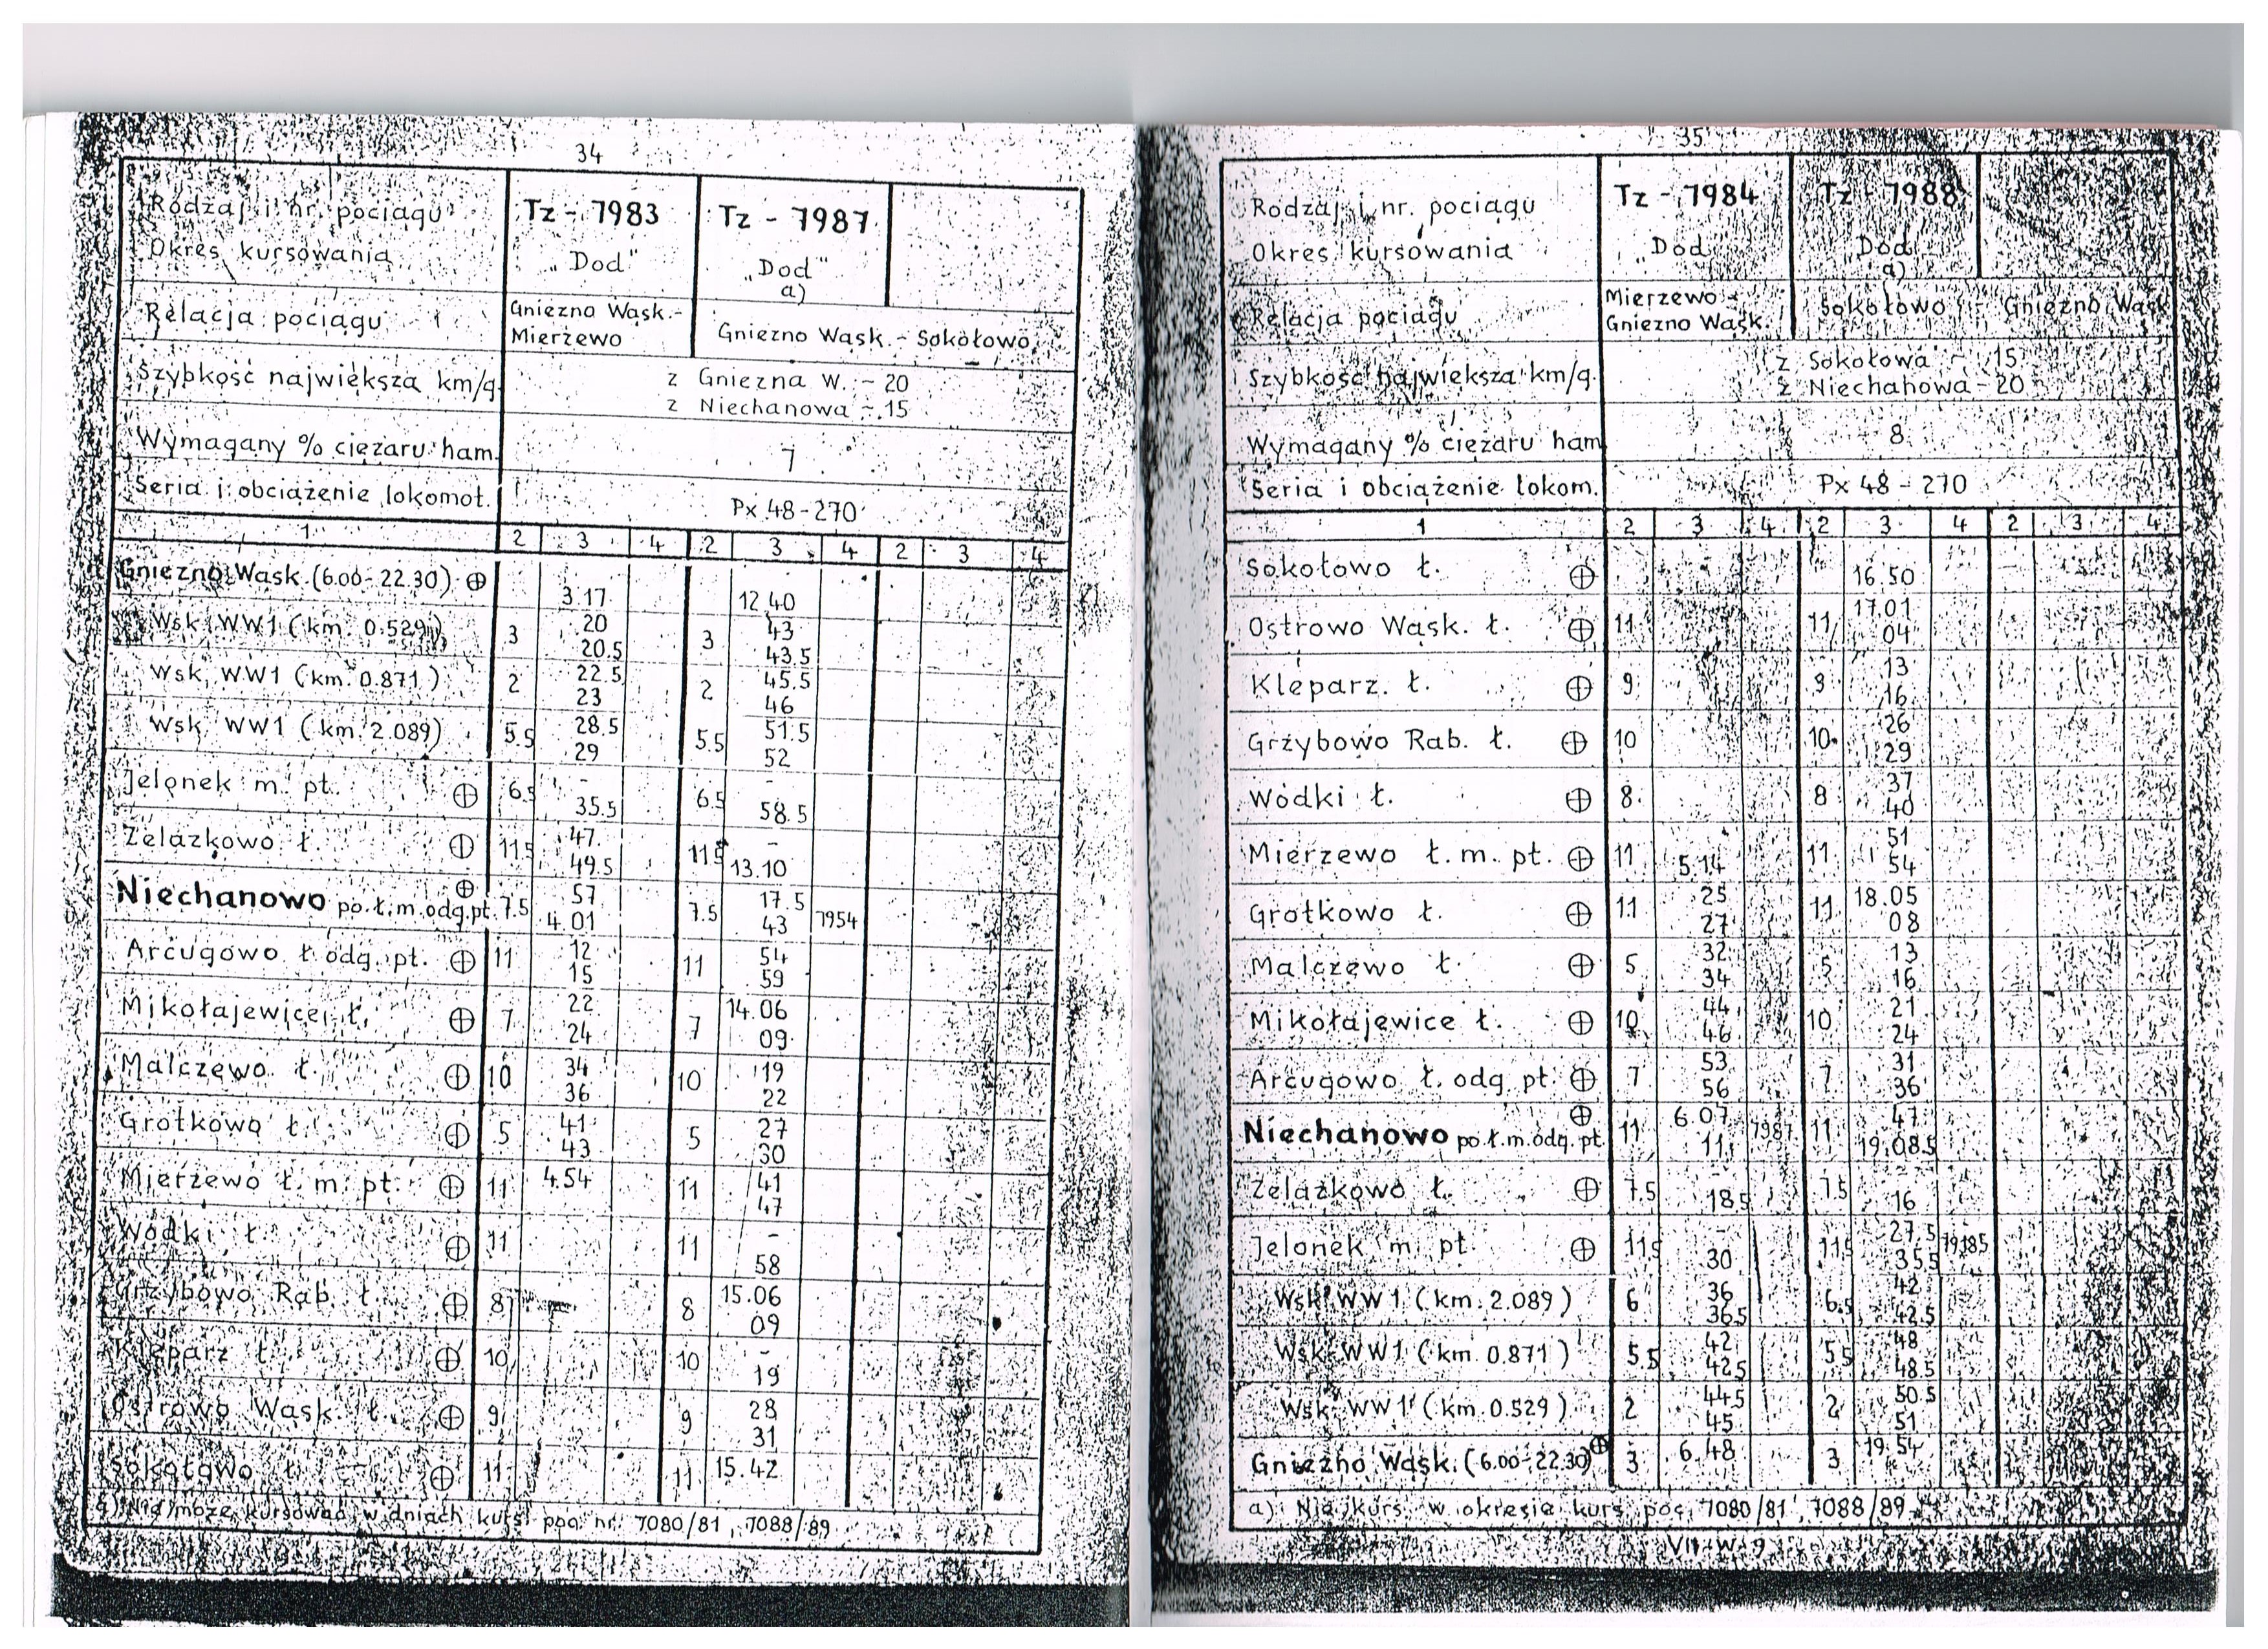 34
Rodzaj i nr. pociągu
Okres kursowania
Tz - 7983
„Dod"
Tz - 7987
„Dod"
a)
Relacja pociągu
Gniezno Wąsk.-
Mierzewo
Gniezno Wąsk. - Sokołowo
Szybkość największa km/g.
z Gniezna W. - 20
z Niechanowa - 15
Wymagany % ciężaru ham.
7
Seria i obciążenie lokomot.
Px 48-270
1 2 3 4 2 3 4 2 3 4
Gniezno Wąsk. (6.00-22.30) ⊕ 3.17 12.40
Wsk WW1 (km. 0.529) 3 20 3 43
20.5 43.5
Wsk WW1 (km. 0.871) 2 22.5 2 45.5
23 46
Wsk WW1 (km. 2.089) 5.5 28.5 5.5 51.5
29 52
Jelonek m. pt. ⊕ 6.5 - 6.5 -
35.5 58.5
Żelazkowo ł. ⊕ 11.5 47. 11.5 -
49.5 13.10
Niechanowo po.ł.m.odg.pt. ⊕ 7.5 57 7.5 17.5
4.01 43 7954
Arcugowo ł. odg. pt. ⊕ 11 12 11 54
15 59
Mikołajewice ł. ⊕ 7 22 7 14.06
24 09
Malczewo ł. ⊕ 10 34 10 19
36 22
Grotkowo ł. ⊕ 5 41 5 27
43 30
Mierzewo ł. m. pt. ⊕ 11 4.54 11 41
47
Wódki ł. ⊕ 11 11 -
58
Grzybowo Rab. ł. ⊕ 8 8 15.06
09
Kleparz ł. ⊕ 10 10 -
19
Ostrowo Wąsk. ł. ⊕ 9 9 28
31
Sokołowo ł. ⊕ 11 11 15.42
a) Nie może kursować w dniach kurs. poc. nr. 7080/81, 7088/89
35
Rodzaj i nr. pociągu
Okres kursowania
Tz - 7984
„Dod"
Tz - 7988
Dod
a)
Relacja pociągu
Mierzewo -
Gniezno Wąsk.
Sokołowo - Gniezno Wąsk
Szybkość największa km/g.
z Sokołowa - 15
z Niechanowa - 20
Wymagany % ciężaru ham
8
Seria i obciążenie lokom.
Px 48 - 270
1 2 3 4 2 3 4 2 3 4
Sokołowo ł. ⊕ 16.50
Ostrowo Wąsk. ł. ⊕ 11 11 17.01
04
Kleparz. ł. ⊕ 9 9 13
16
Grzybowo Rab. ł. ⊕ 10 10 26
29
Wódki ł. ⊕ 8 8 37
40
Mierzewo ł. m. pt. ⊕ 11 5.14 11 51
54
Grotkowo ł. ⊕ 11 25 11 18.05
27 08
Malczewo ł. ⊕ 5 32 5 13
34 16
Mikołajewice ł. ⊕ 10 44 10 21
46 24
Arcugowo ł. odg. pt. ⊕ 7 53 7 31
56 36
Niechanowo po.ł.m.odg.pt. ⊕ 11 6.07 7987 11 47
11 19.08.5
Żelazkowo ł. ⊕ 7.5 - 7.5 -
18.5 16
Jelonek m. pt ⊕ 11.5 - 11.5 27.5
30 35.5
Wsk WW1 (km. 2.089) 6 36 6.5 42
36.5 42.5
Wsk WW1 (km. 0.871) 5.5 42 5.5 48
42.5 48.5
Wsk WW1 (km. 0.529) 2 44.5 2 50.5
45 51
Gniezno Wąsk. (6.00-22.30) ⊕ 3 6.48 3 19.54
a) Nie kurs. w okresie kurs. poc. 7080/81, 7088/89